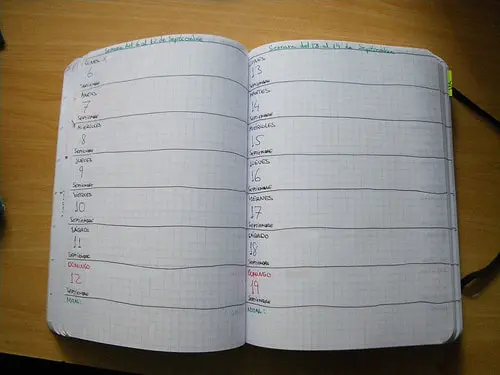 Semana del 6 al 12 de Septiembre
LUNES
6
SEPTIEMBRE
MARTES
7
SEPTIEMBRE
MIÉRCOLES
8
SEPTIEMBRE
JUEVES
9
SEPTIEMBRE
VIERNES
10
SEPTIEMBRE
SÁBADO
11
SEPTIEMBRE
DOMINGO
12
SEPTIEMBRE
Semana del 13 al 19 de Septiembre
LUNES
13
SEPTIEMBRE
MARTES
14
SEPTIEMBRE
MIÉRCOLES
15
SEPTIEMBRE
JUEVES
16
SEPTIEMBRE
VIERNES
17
SEPTIEMBRE
SÁBADO
18
SEPTIEMBRE
DOMINGO
19
SEPTIEMBRE